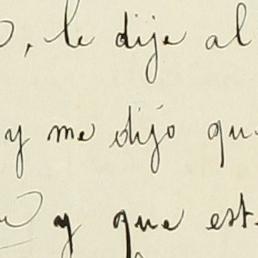 , le dije al
y me dijo qu
y que est